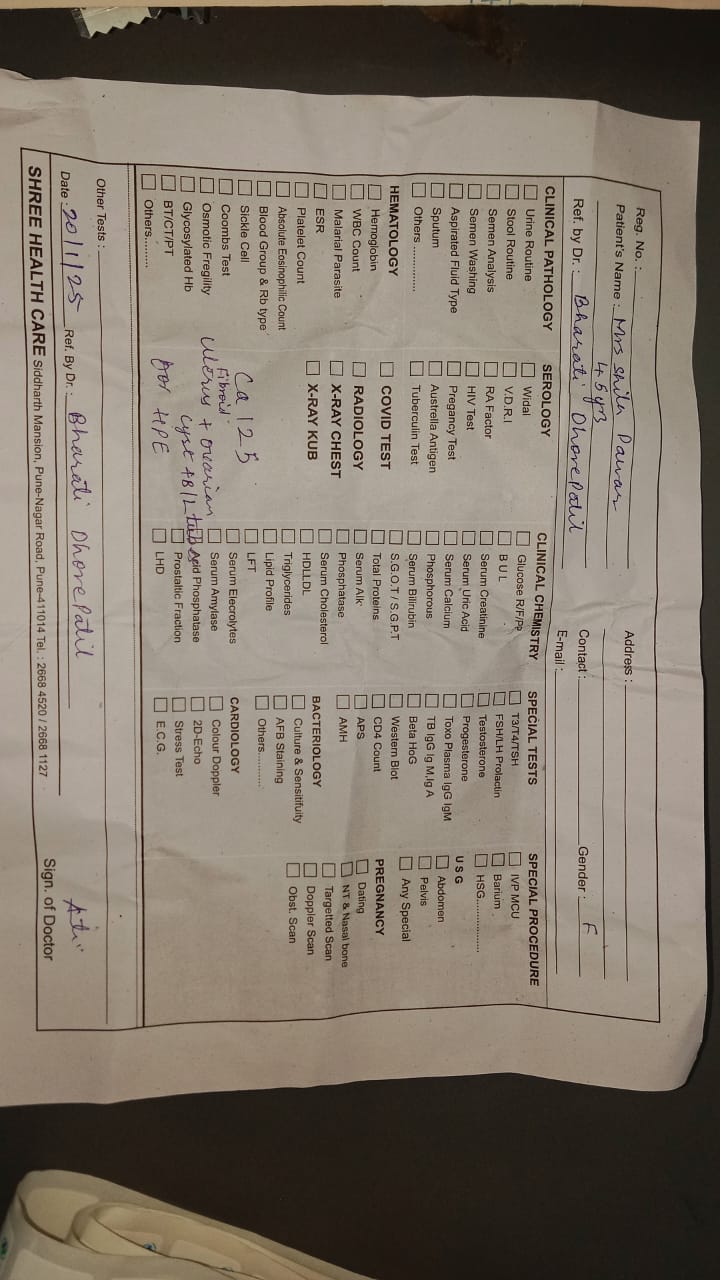 Reg. No. :
Patient's Name : Mrs Shila Pawar
45 yrs
Ref. by Dr. : Bharati Dhorepatil
Address :
Contact :
Gender : F
E-mail :
CLINICAL PATHOLOGY
Urine Routine
Stool Routine
Semen Analysis
Semen Washing
Aspirated Fluid Type
Sputum
Others ..............
HEMATOLOGY
Hemoglobin
WBC Count
Malarial Parasite
ESR
Platelet Count
Absolute Eosinophilic Count
Blood Group & Rb type
Sickle Cell
Coombs Test
Osmotic Fregility
Glycosylated Hb
BT/CT/PT
Others.........
SEROLOGY
Widal
V.D.R.I
RA Factor
HIV Test
Pregancy Test
Austrella Antigen
Tuberculin Test
COVID TEST
RADIOLOGY
X-RAY CHEST
X-RAY KUB
Ca 125
Fibroid
Uterus + ovarian
cyst + B/L tubes
for HPE
CLINICAL CHEMISTRY
Glucose R/F/PP
B U L
Serum Crealinine
Serum Uric Acid
Serum Calcium
Phosphorous
Serum Bilirubin
S.G.O.T / S.G.P.T
Total Proteins
Serum Alk
Phosphatase
Serum Cholesterol
HDLLDL
Triglycerides
Lipid Profile
LFT
Serum Elecrolytes
Serum Amylase
Acid Phosphatase
Prostaltic Fraction
LHD
SPECIAL TESTS
T3/T4/TSH
FSH/LH Prolactin
Testosterone
Progesterone
Toxo Plasma IgG IgM
TB IgG Ig M,Ig A
Beta HoG
Western Blot
CD4 Count
APS
AMH
BACTERIOLOGY
Culture & Sensitifuity
AFB Staining
Others..........
CARDIOLOGY
Colour Doppler
2D-Echo
Stress Test
E.C.G.
SPECIAL PROCEDURE
IVP MCU
Barium
HSG..................
U S G
Abdomen
Pelvis
Any Special
PREGNANCY
Dating
NT & Nasal bone
Targetted Scan
Doppler Scan
Obst. Scan
Other Tests :
Date : 20/1/25 Ref. By Dr. : Bharati Dhorepatil
Sign. of Doctor
SHREE HEALTH CARE Siddharth Mansion, Pune-Nagar Road, Pune-411014 Tel. : 2668 4520 / 2668 1127